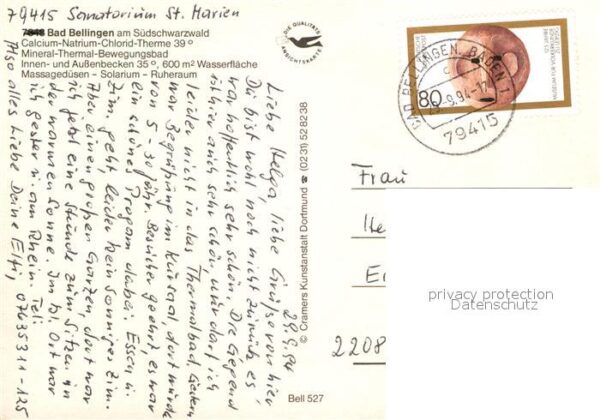 79415 Sanatorium St. Marien
7848 Bad Bellingen am Südschwarzwald
Calcium-Natrium-Chlorid-Therme 39°
Mineral-Thermal-Bewegungsbad
Innen- und Außenbecken 35°, 600 m² Wasserfläche
Massagedüsen – Solarium – Ruheraum
DIE QUALITÄTS
ANSICHTSKARTE
29.9.94
Liebe Helga, liebe Grüße von hier
Du bist wohl noch nicht zurück, es
war hoffentlich sehr schön. Die Gegend
ist hier auch sehr schön, nur darf ich
leider nicht in das Thermalbad. Gestern
war Begrüßung im Kursaal, dort wurde
von 5 - 30 jähr. Besucher geehrt, es war
ein schönes Program dabei. Essen u.
Zim. geht, leider kein sonniges Zim.
Aber einen großen Garten, dort war
ich jetzt eine Stunde zum Sitzen in
der warmen Sonne. Im Ort war
ich gestern u. am Rhein. Tel:
Also alles Liebe Deine Elfi, 07635311-125
© Cramers Kunstanstalt Dortmund ☎ (0231) 52 82 38
Bell 527
80
BAD BELLINGEN, BADEN 1
9.94-17
79415
Frau
2208
privacy protection
Datenschutz